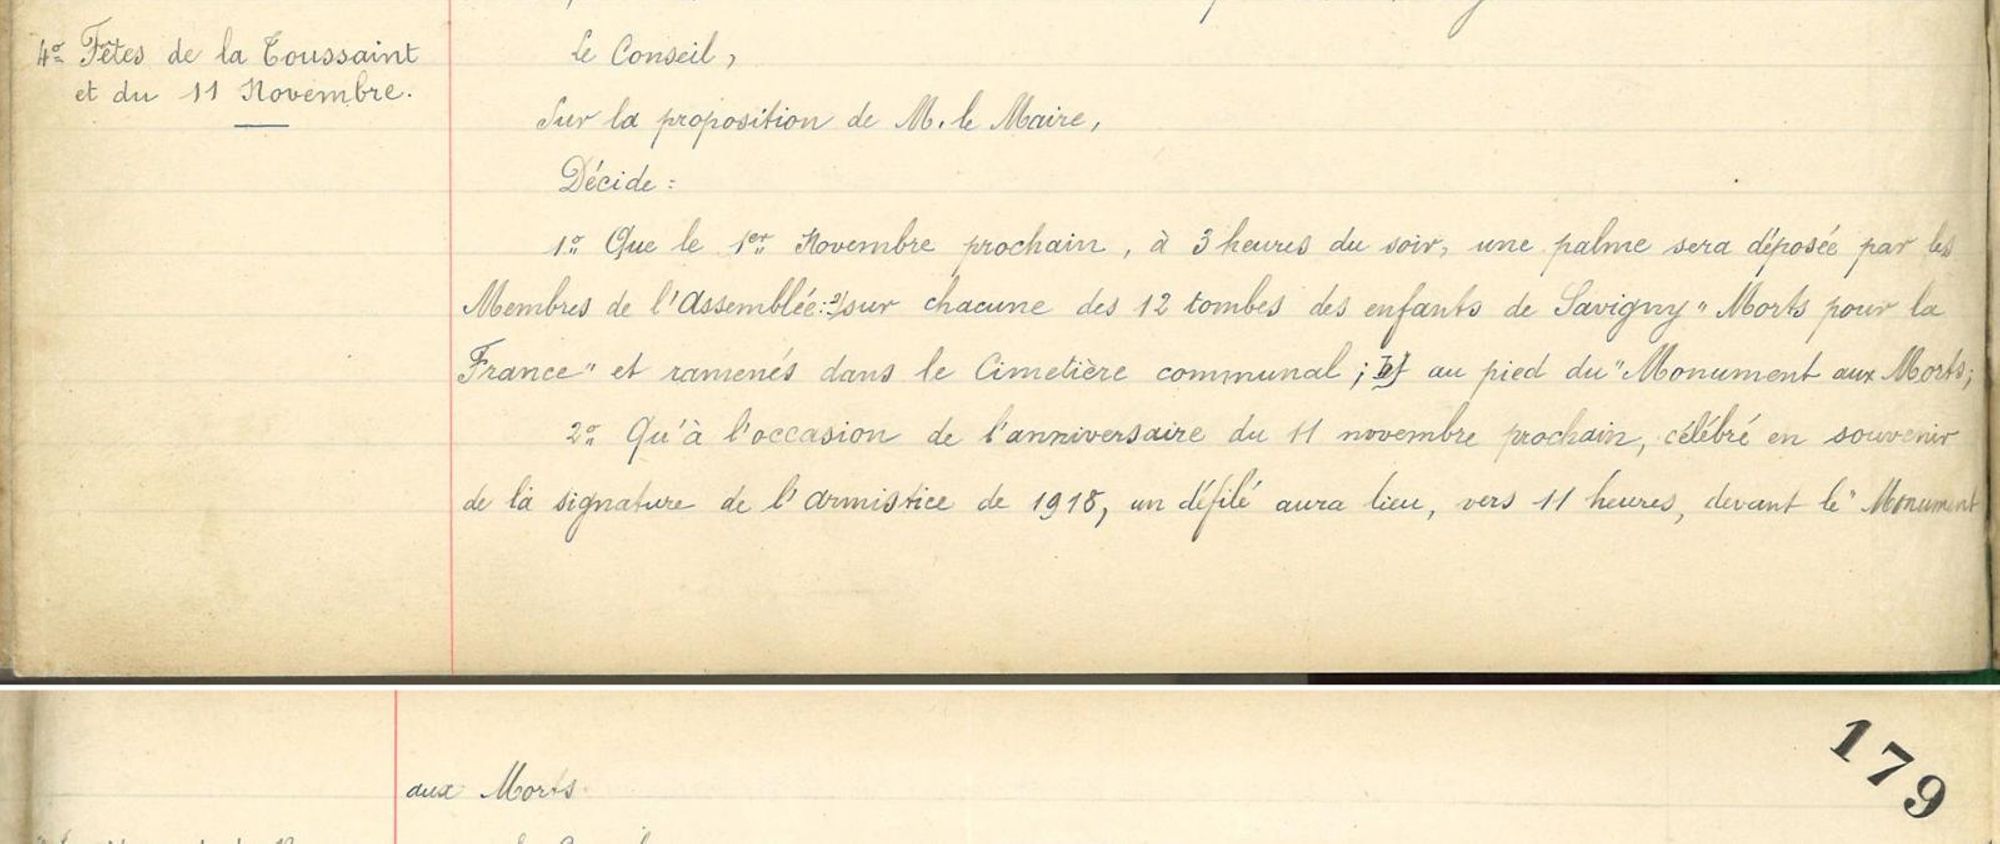 4° Fêtes de la Toussaint
et du 11 Novembre.
Le Conseil,
Sur la proposition de M. le Maire,
Décide :
1° Que le 1er Novembre prochain, à 3 heures du soir, une palme sera déposée par les
Membres de l'Assemblée: a) sur chacune des 12 tombes des enfants de Savigny "Morts pour la
France" et ramenés dans le Cimetière communal ; b) au pied du "Monument aux Morts;
2° Qu'à l'occasion de l'anniversaire du 11 novembre prochain, célébré en souvenir
de la signature de l'armistice de 1918, un défilé aura lieu, vers 11 heures, devant le "Monument
179
aux Morts